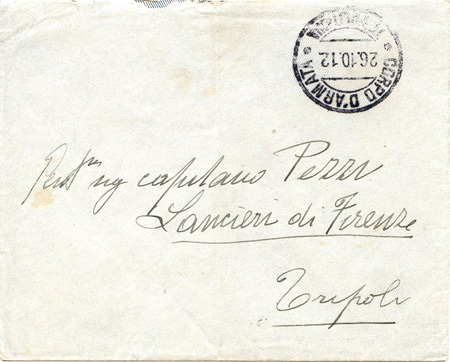 CORPO D'ARMATA
26.10.12
capitano Pezzi
Lancieri di Firenze
Tripoli